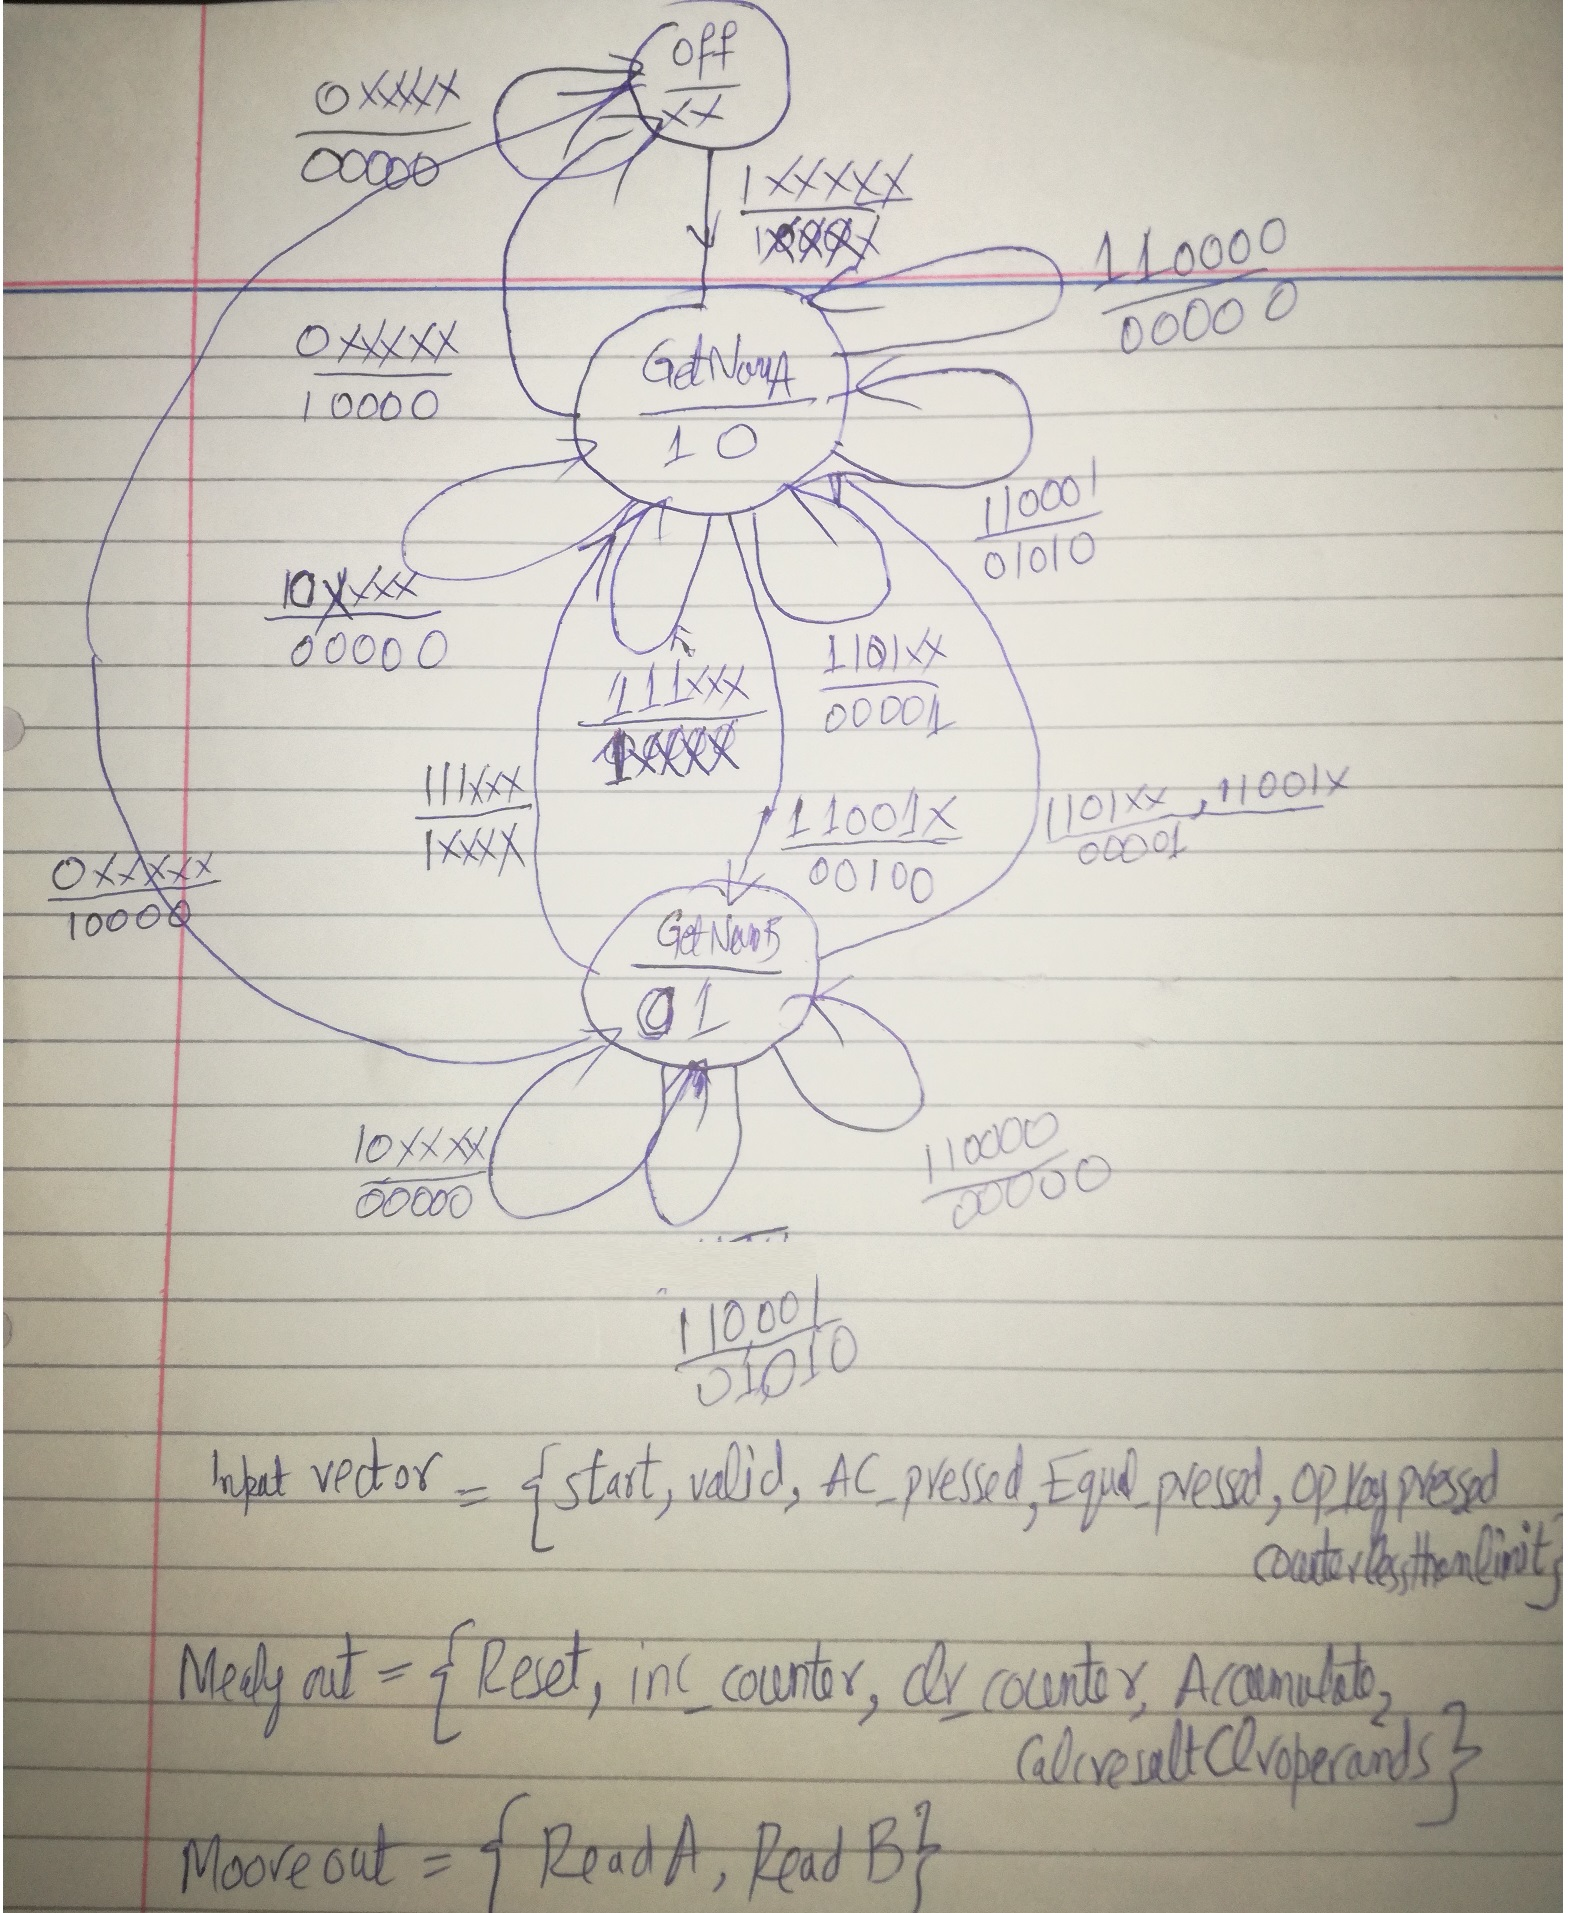 Off
XX
0XXXXX
00000
1XXXXX
110000
00000
0XXXXX
10000
GetNumA
10
110001
01010
10XXXX
00000
111XXX
1101XX
00001
111XXX
1XXXX
11001X
00100
1101XX, 11001X
00001
0XXXXX
10000
GetNumB
01
10XXXX
00000
110000
00000
110001
01010
Input vector = {start, valid, AC_pressed, Equal_pressed, Op_key pressed
counterlessthanlimit}
Mealy out = {Reset, inc_counter, clr_counter, Accumulate,
CalcresultClroperands}
Moore out = {Read A, Read B}